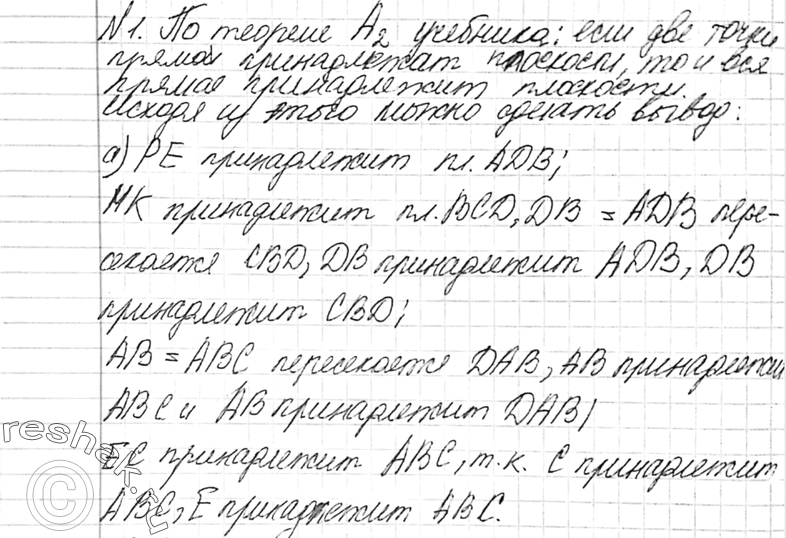 N1. По теореме А2 учебника: если две точки
прямой принадлежат плоскости, то и вся
прямая принадлежит плоскости.
Исходя из этого можно сделать вывод:
а) PE принадлежит пл. ADB;
MK принадлежит пл. BCD, DB = ADB пере-
секается CBD, DB принадлежит ADB, DB
принадлежит CBD;
AB = ABC пересекается DAB, AB принадлежит
ABC и AB принадлежит DAB;
EC принадлежит ABC, т.к. C принадлежит
ABC, E принадлежит ABC.
reshak.ru
©